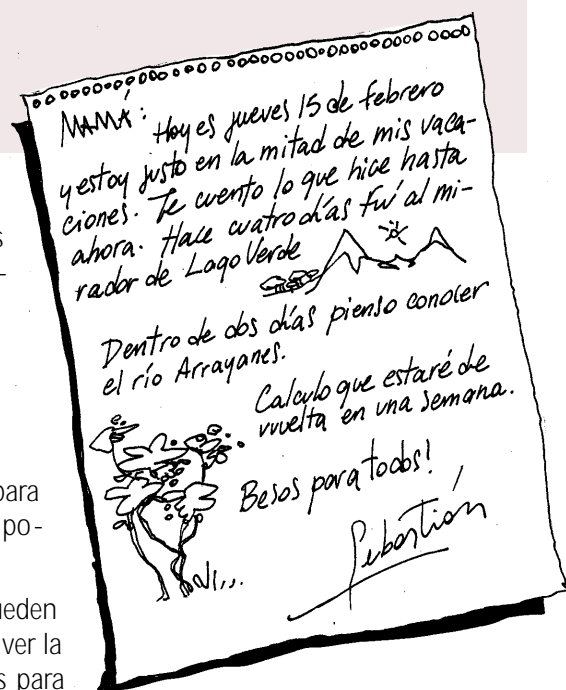 MAMÁ:
Hoy es jueves 15 de febrero
y estoy justo en la mitad de mis vaca-
ciones. Te cuento lo que hice hasta
ahora. Hace cuatro días fui al mi-
rador de Lago Verde
Dentro de dos días pienso conocer
el río Arrayanes.
Calculo que estaré de
vuelta en una semana.
Besos para todos!
Sebastián
s
-
para
po-
ueden
ver la
s para